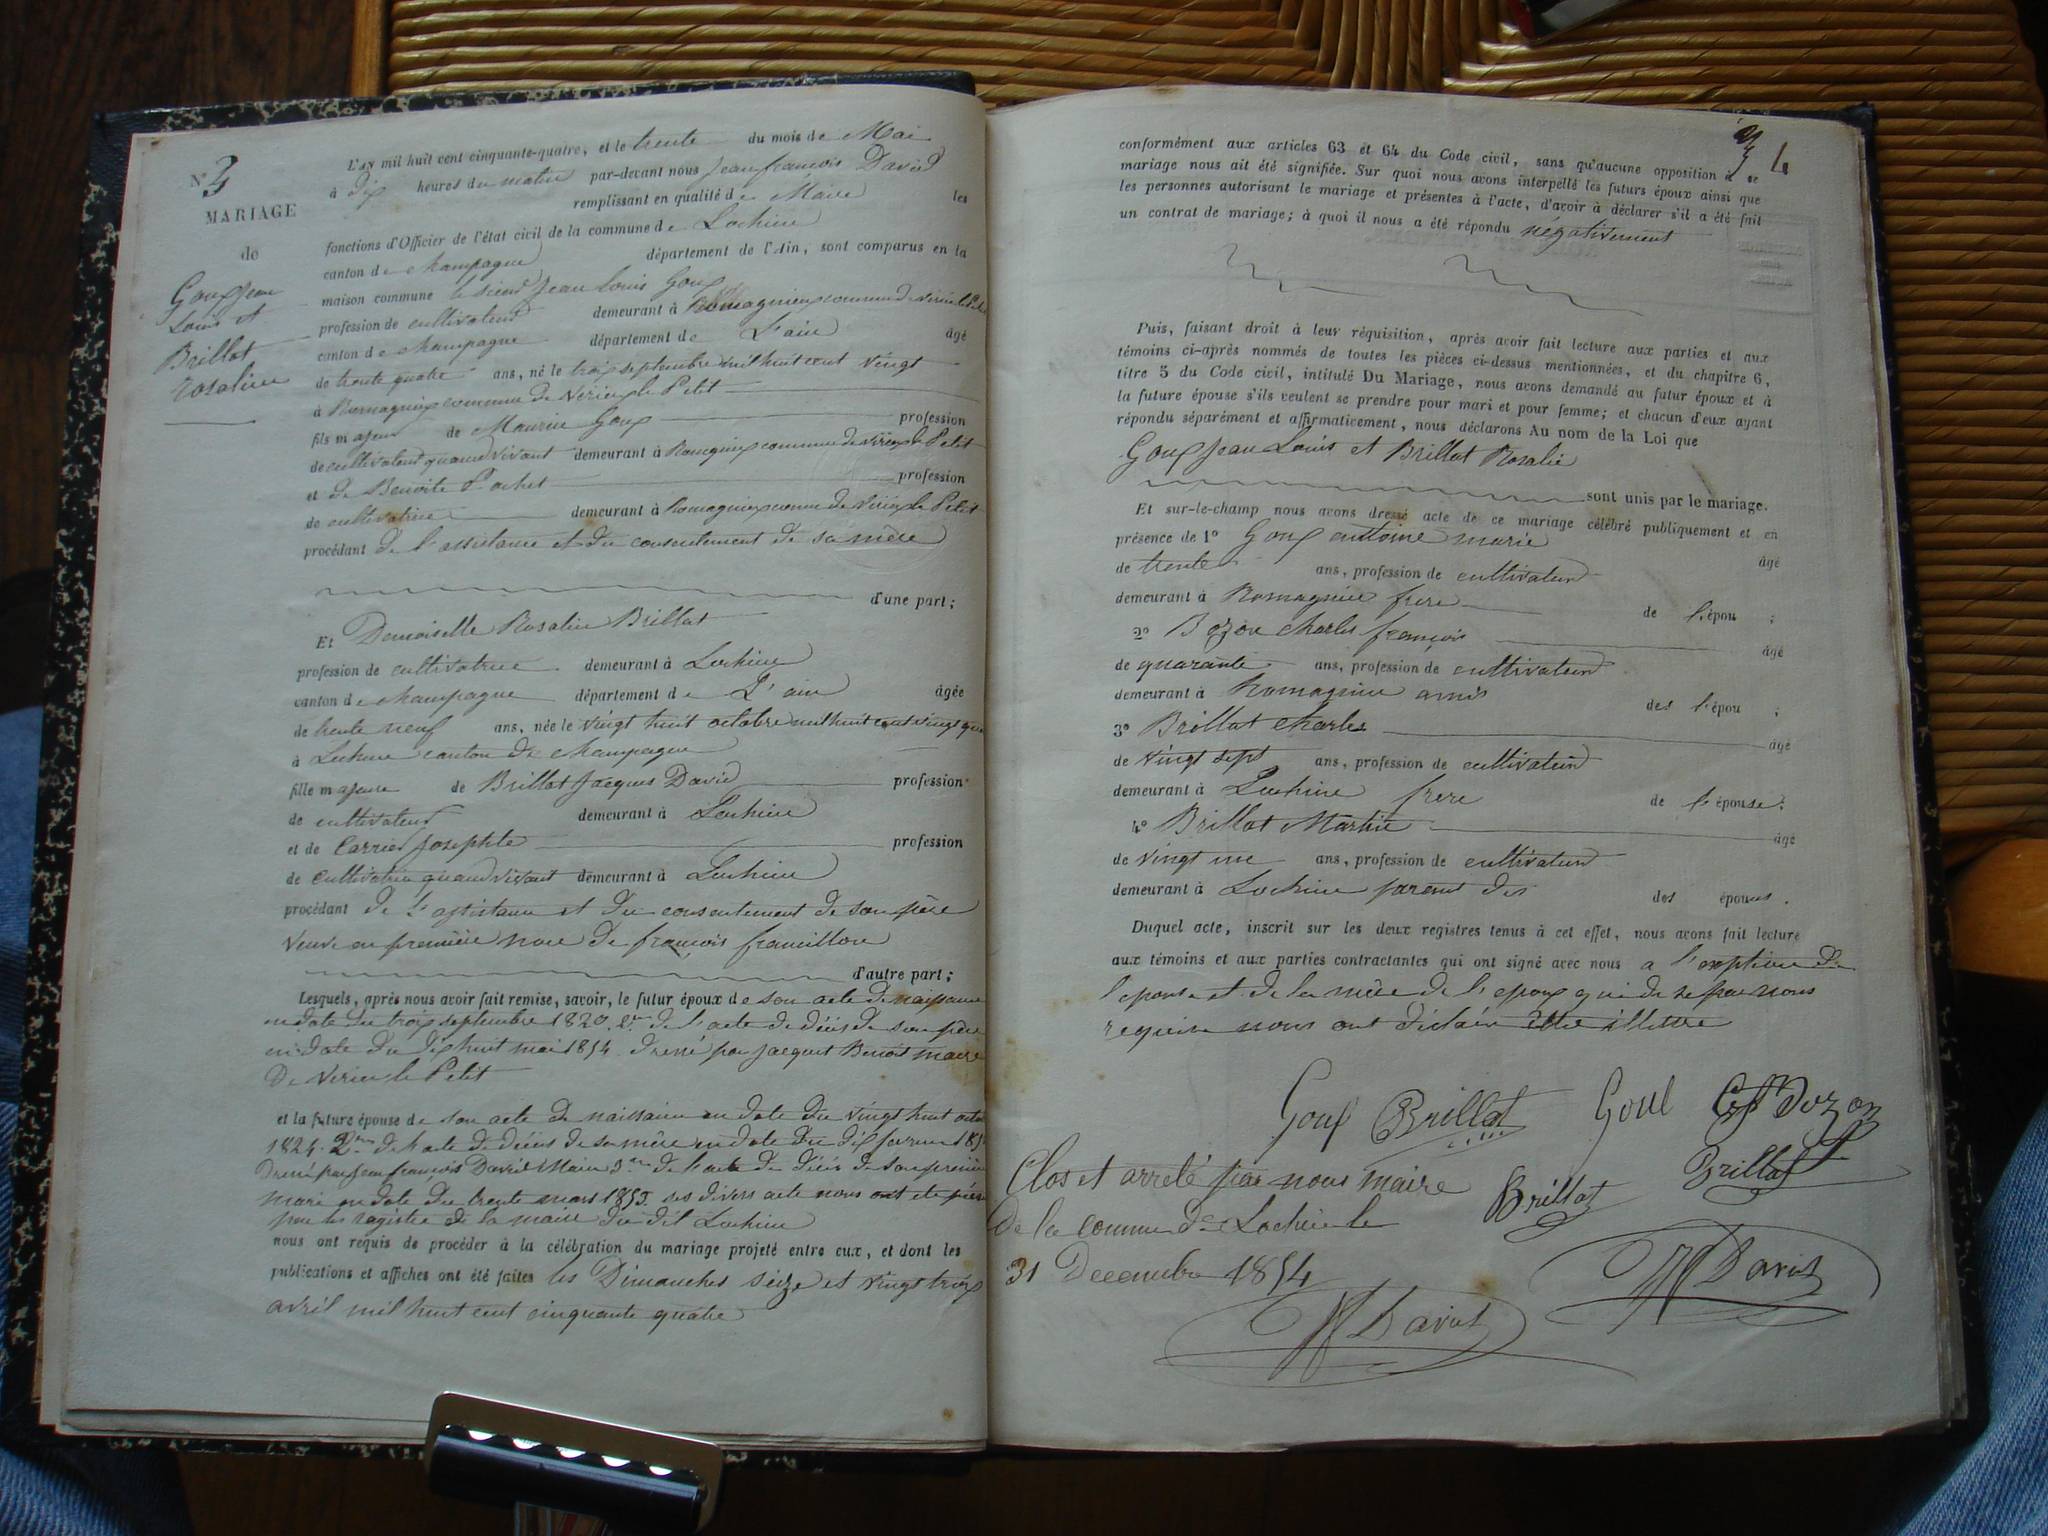 N° 3
MARIAGE
de
Goux Jean
Louis et
Brillat
rosalie
L'AN mil huit cent cinquante-quatre, et le trente du mois de Mai
à dix heures du matin par-devant nous Jean françois David
remplissant en qualité de Maire les
fonctions d'Officier de l'état civil de la commune de Lochieu
canton de champagne département de l'Ain, sont comparus en la
maison commune le sieur Jean Louis Goux
profession de cultivateur demeurant à Romagnieu commune de virieu le Petit
canton de champagne département de L'ain âgé
de trente quatre ans, né le trois septembre mil huit cent vingt
à Romagnieu commune de virieu le Petit
fils majeur de Maurice Goux profession
de cultivateur quand vivant demeurant à Romagnieu commune de virieu le Petit
et de Benoite Pochet profession
de cultivatrice demeurant à Romagnieu comune de virieu le Petit
procédant de l'assistance et du consentement de sa mère
d'une part;
Et Demoiselle Rosalie Brillat
profession de cultivatrice demeurant à Lochieu
canton de champagne département de L'ain âgée
de trente neuf ans, née le vingt huit octobre mil huit cent vingt
à Lochieu canton de champagne
fille majeure de Brillat Jacques David profession
de cultivateur demeurant à Lochieu
et de Carrier Josephte profession
de cultivatrice quand vivant demeurant à Lochieu
procédant de l'assistance et du consentement de son père
veuve en première noce de françois francillon
d'autre part;
Lesquels, après nous avoir fait remise, savoir, le futur époux de son acte de naissance
en date du trois septembre 1820. 2me de l'acte de décès de son père
en date du dix huit mai 1854 dressé par Jacquet Benoit maire
de virieu le Petit
et la future épouse de son acte de naissance en date du vingt huit
1824. 2me de l'acte de décès de sa mère en date du dix
Dressé par Jean françois David Maire 3me de l'acte de décès de son premier
mari en date du trente mars 1853. ses divers acte nous ont ete
par les registre de la mairie du dit Lochieu
nous ont requis de procéder à la célébration du mariage projeté entre eux, et dont les
publications et affiches ont été faites les Dimanches seize et vingt trois
avril mil huit cent cinquante quatre
4
conformément aux articles 63 et 64 du Code civil, sans qu'aucune opposition à ce
mariage nous ait été signifiée. Sur quoi nous avons interpellé les futurs époux ainsi que
les personnes autorisant le mariage et présentes à l'acte, d'avoir à déclarer s'il a été fait
un contrat de mariage; à quoi il nous a été répondu négativement
Puis, faisant droit à leur réquisition, après avoir fait lecture aux parties et aux
témoins ci-après nommés de toutes les pièces ci-dessus mentionnées, et du chapitre 6,
titre 5 du Code civil, intitulé Du Mariage, nous avons demandé au futur époux et à
la future épouse s'ils veulent se prendre pour mari et pour femme; et chacun d'eux ayant
répondu séparément et affirmativement, nous déclarons Au nom de la Loi que
Goux Jean Louis et Brillat Rosalie
sont unis par le mariage.
Et sur-le-champ nous avons dressé acte de ce mariage célébré publiquement et en
présence de 1° Goux anttoine marie âgé
de trente ans, profession de cultivateur
demeurant à Romagnieu frere de l'épou ;
2° Bozon charles françois âgé
de quarante ans, profession de cultivateur
demeurant à Romagnieu amis des l'épou ;
3° Brillat charles âgé
de vingt sept ans, profession de cultivateur
demeurant à Lochieu frere de l'épouse;
4° Brillat Martin âgé
de vingt un ans, profession de cultivateur
demeurant à Lochieu parent des des époues.
Duquel acte, inscrit sur les deux registres tenus à cet effet, nous avons fait lecture
aux témoins et aux parties contractantes qui ont signé avec nous a l'exption de
l'epouse et de la mère de l'epoux qui de se par nous
requise nous ont déclaré être illettré
Goux Brillat Goux Bozon
Clos et arreté par nous maire Brillat Brillat
De la comune de Lochieu le
31 Decembre 1854
David
David